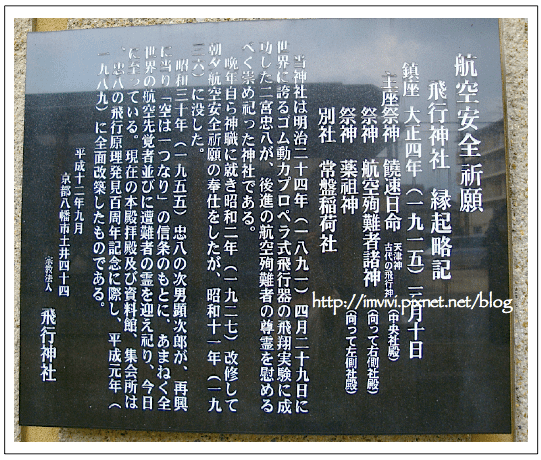 航空安全祈願
飛行神社 縁起略記
鎮座 大正四年（一九一五）三月十日
主座祭神 饒速日命 天津神 古代の飛行神（中央社殿）
祭神 航空殉難者諸神（向って右側社殿）
祭神 薬祖神（向って左側社殿）
別社 常盤稲荷社
当神社は明治二十四年（一八九一）四月二十九日に
世界に誇るゴム動力プロペラ式飛行器の飛翔実験に成
功した二宮忠八が、後進の航空殉難者の尊霊を慰める
べく崇め祀った神社である。
晩年自ら神職に就き昭和二年（一九二七）改修して
朝夕航空安全祈願の奉仕をしたが、昭和十一年（一九
三六）に没した。
昭和三十年（一九五五）忠八の次男顕次郎が、再興
に当り「空は一つなり」の信条のもとに、あまねく全
世界の航空先覚者並びに遭難者の霊を迎え祀り、今日
に至っている。現在の本殿拝殿及び資料館、集会所は
、忠八の飛行原理発見百周年記念に際し、平成元年（
一九八九）に全面改築したものである。
平成十二年九月
京都八幡市土井四十四
宗教法人 飛行神社
http://imvivi.pixnet.net/blog